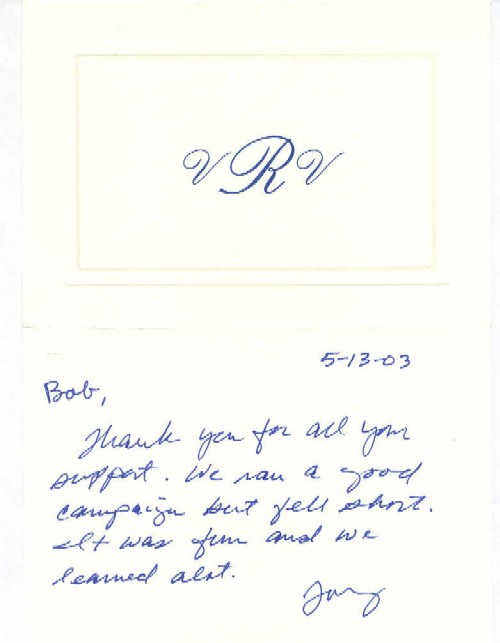 VRV
5-13-03
Bob,
Thank you for all your
support. We ran a good
campaign but fell short.
It was fun and we
learned alot.